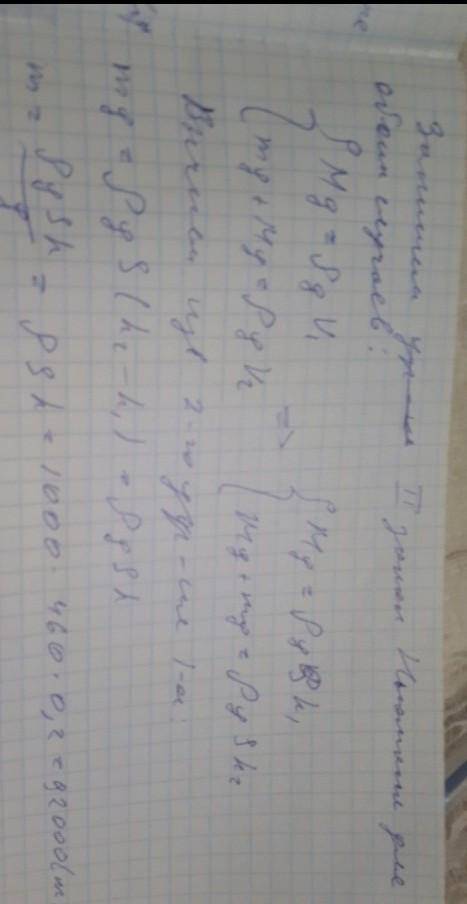 Запишем II закон Ньютона для
обоих случаев:
{ Mg = ρgV₁ => { Mg = ρgSh₁
{ mg + Mg = ρgV₂ { Mg + mg = ρgSh₂
Вычтем из 2-го ур-ния 1-ое:
mg = ρgS(h₂ - h₁) = ρgSh
m = ρgSh/g = ρSh = 1000 · 460 · 0,2 = 92000